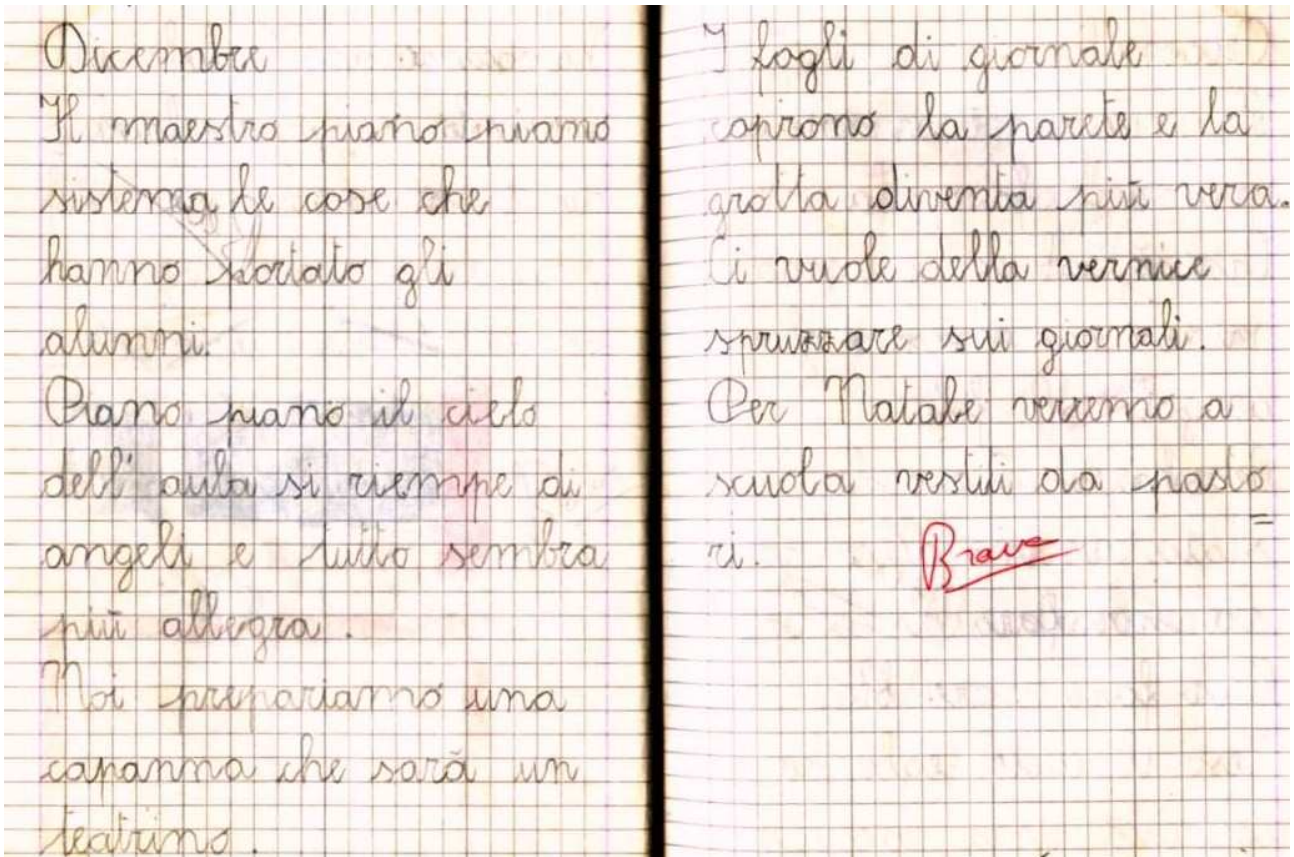 Dicembre
Il maestro piano piano
sistema le cose che
hanno portato gli
alunni.
Piano piano il cielo
dell'aula si riempe di
angeli e tutto sembra
più allegra.
Noi prepariamo una
capanna che sarà un
teatrino.
I fogli di giornale
coprono la parete e la
grotta diventa più vera.
Ci vuole della vernice
spruzzare sui giornali.
Per Natale verremo a
scuola vestiti da pasto=
ri.
Brava